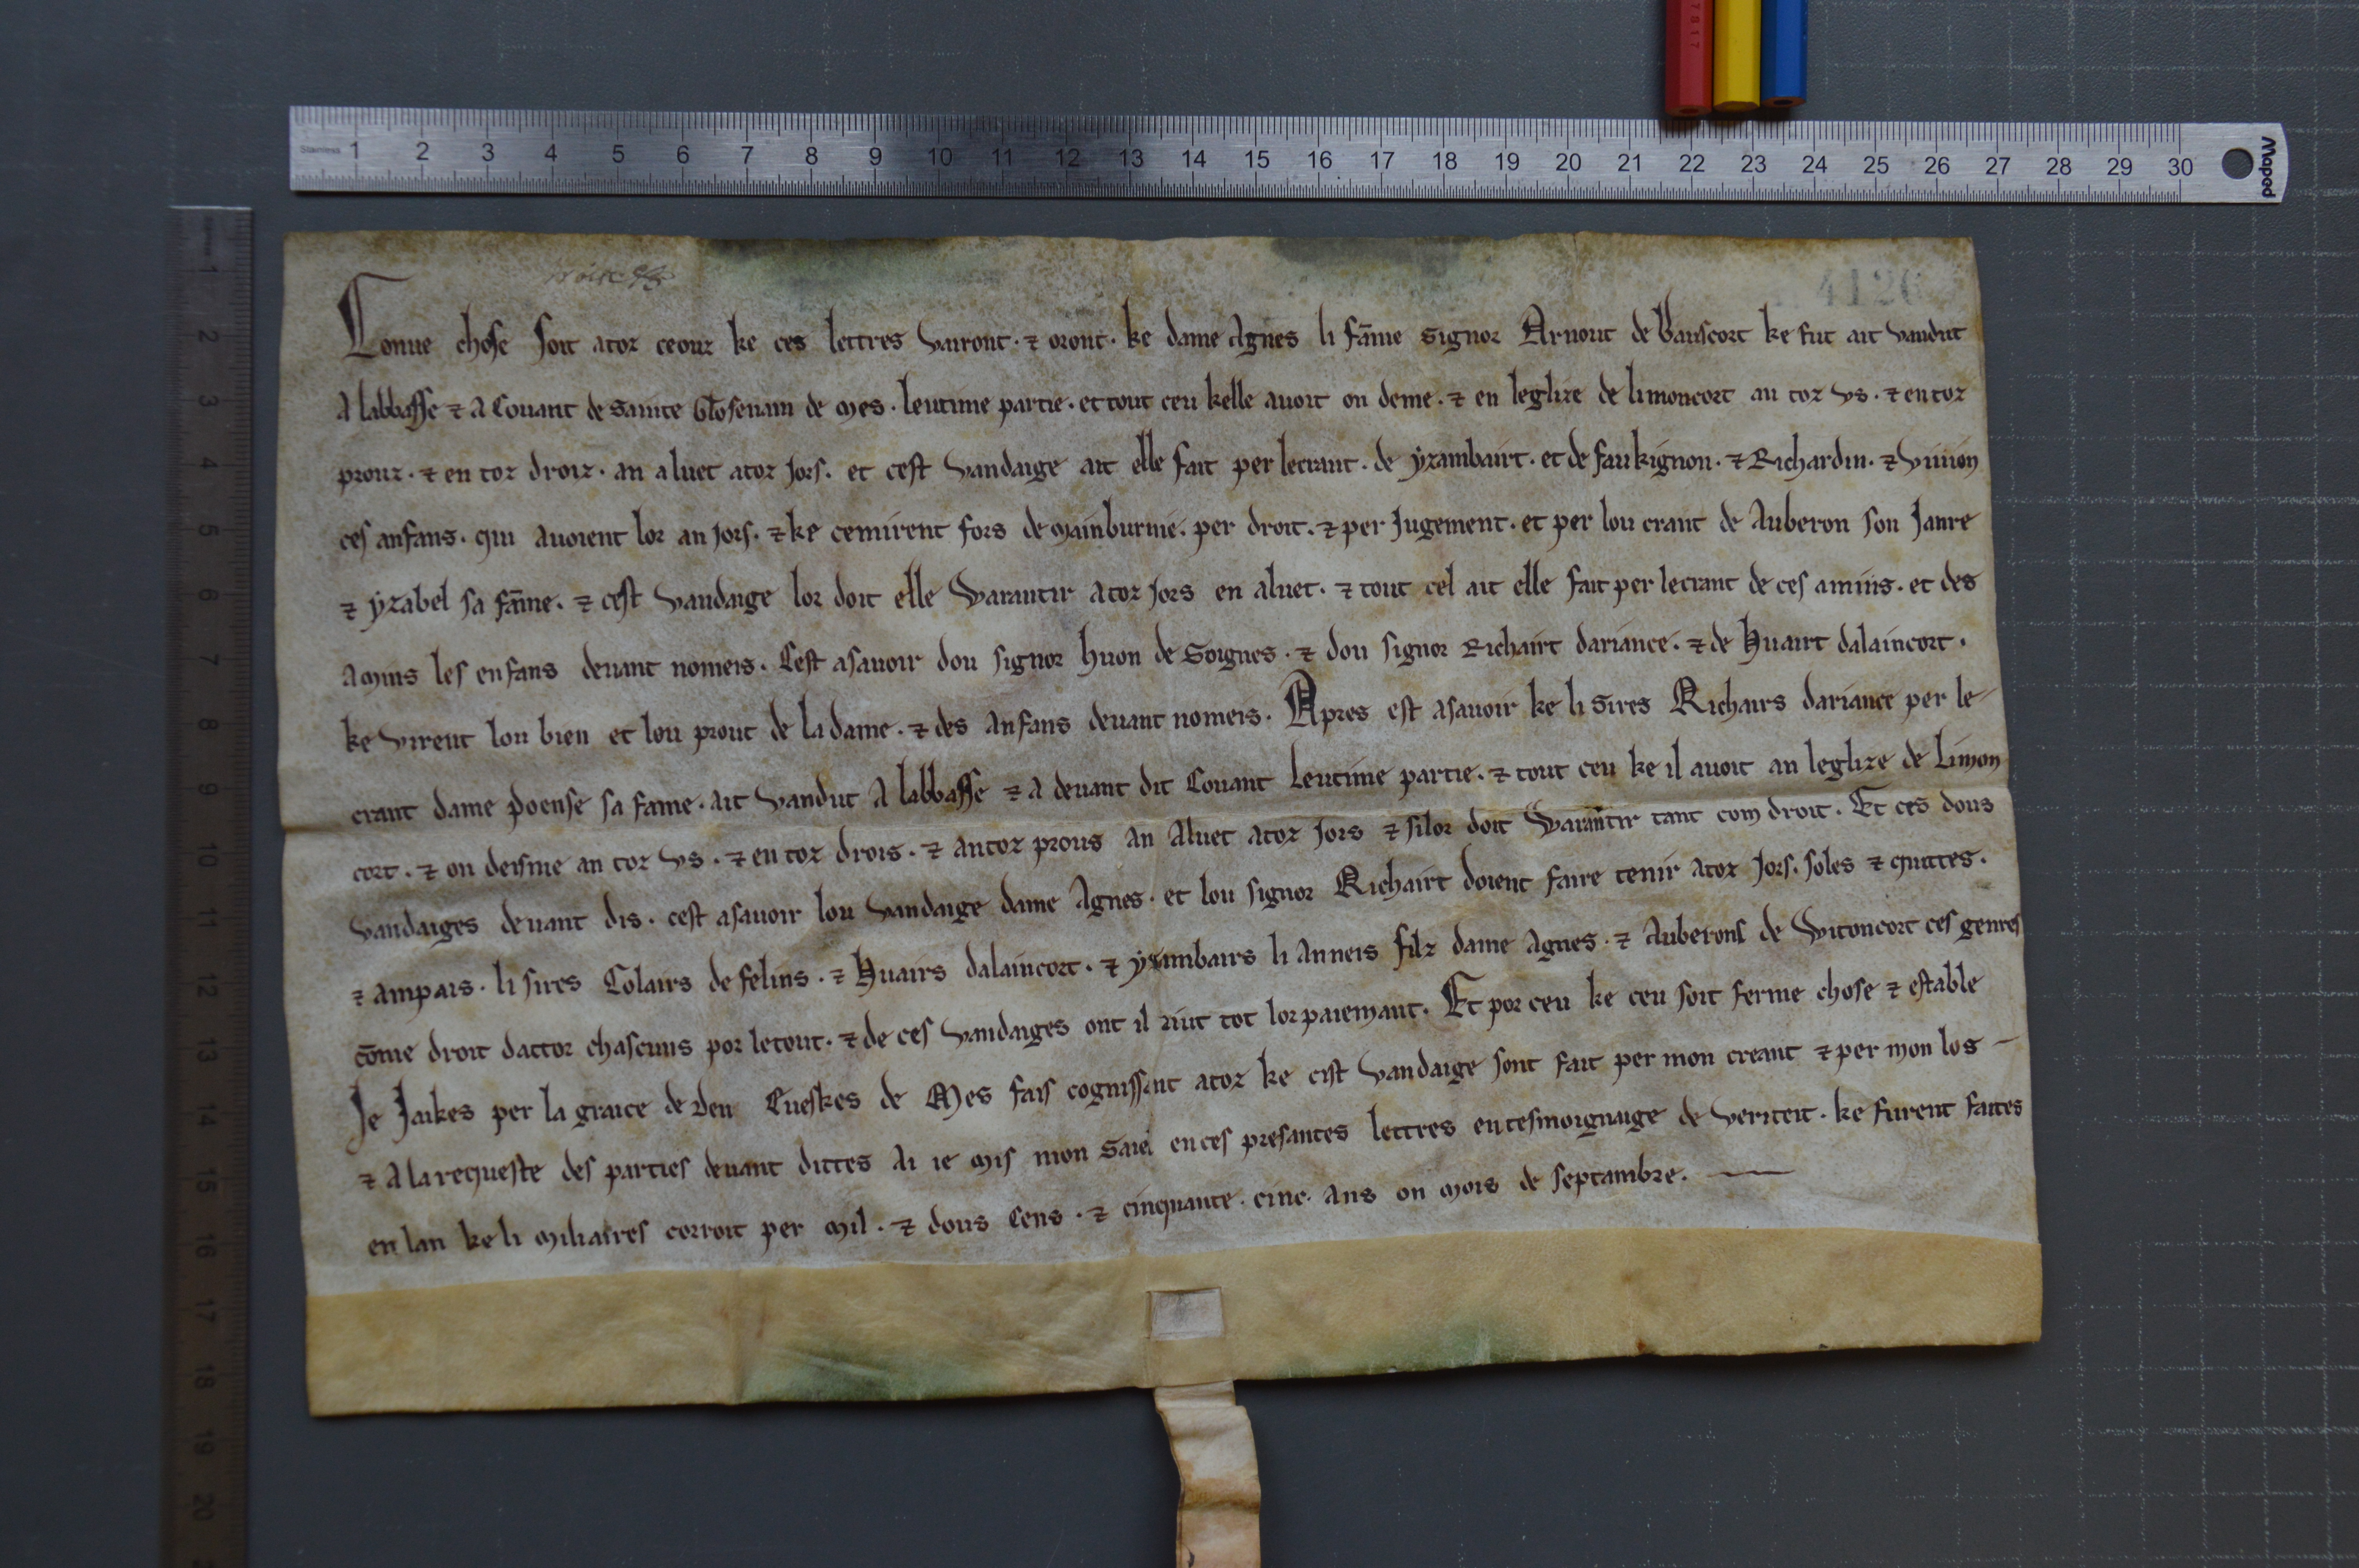 4126
Conue chose soit atoz ceouz ke ces lettres vairont · ⁊ oront · ke dame Agnes li fāme signor Arnout de bauscort ke fut ait vandut
A labbasse ⁊ A Couant de sainte Glosenain de mes · leutime partie · et tout ceu kelle auoit on deme · ⁊ en leglize de limoncort an toz vs · ⁊ en toz
prouz · ⁊ en toz droiz · an aluet atoz Jors · et cest vandaige ait elle fait per lecrant · de yzambairt · et de faukignon · ⁊ Richardin · ⁊ viuion
ces anfans · qui auoient lor an Jors · ⁊ ke cemirent fors de mainburnie · per droit · ⁊ per Jugement · et per lou crant de Auberon son Janre
⁊ yzabel sa fāme · ⁊ cest vandaige lor doit elle Warantir atoz Jors en aluet · ⁊ tout cel ait elle fait per lecrant de ces amiis · et des
Amiis les enfans deuant nomeis · Cest asauoir dou signor huon de Soignes · ⁊ dou signor Richairt dariance · ⁊ de Huairt dalaincort ·
ke virent lou bien et lou prout de la dame · ⁊ des Anfans deuant nomeis · Apres est asauoir ke li Sires Richairs dariance per le-
crant dame poense sa fame · ait vandut A labbasse ⁊ A deuant dit Couant leutime partie · ⁊ tout ceu ke il auoit an leglize de Limon
cort · ⁊ on deisme an toz vs · ⁊ en toz drois · ⁊ antoz prous an Aluet atoz Jors ⁊ silor doit Warantir tant com droit · Et ces dous
vandaiges deuant dis · cest asauoir lou vandaige dame Agnes · et lou signor Richairt doient faire tenir atoz Jors · soles ⁊ quittes ·
⁊ Ampais · li sires Colairs de felins · ⁊ Huairs dalaincort · ⁊ yzambairs li Anneis filz dame Agnes · ⁊ Auberons de Witoncort ces genres
cōme droit dattor chascuns por letout · ⁊ de ces vandaiges ont il riut tot lor paiemant · Et por ceu ke ceu soit ferme chose ⁊ estable
Je Jaikes per la graice de deu Eueskes de Mes fais cognissant atoz ke cist vandaige sont fait per mon creant ⁊ per mon los -
⁊ A la requeste des parties deuant dittes Ai ie mis mon saiel en ces presantes lettres en tesmoignaige de veriteit · ke furent faites
en lan ke li miliaires corroit per mil · ⁊ dous Cens · ⁊ cinquante · cinc · ans on mois de septambre ·